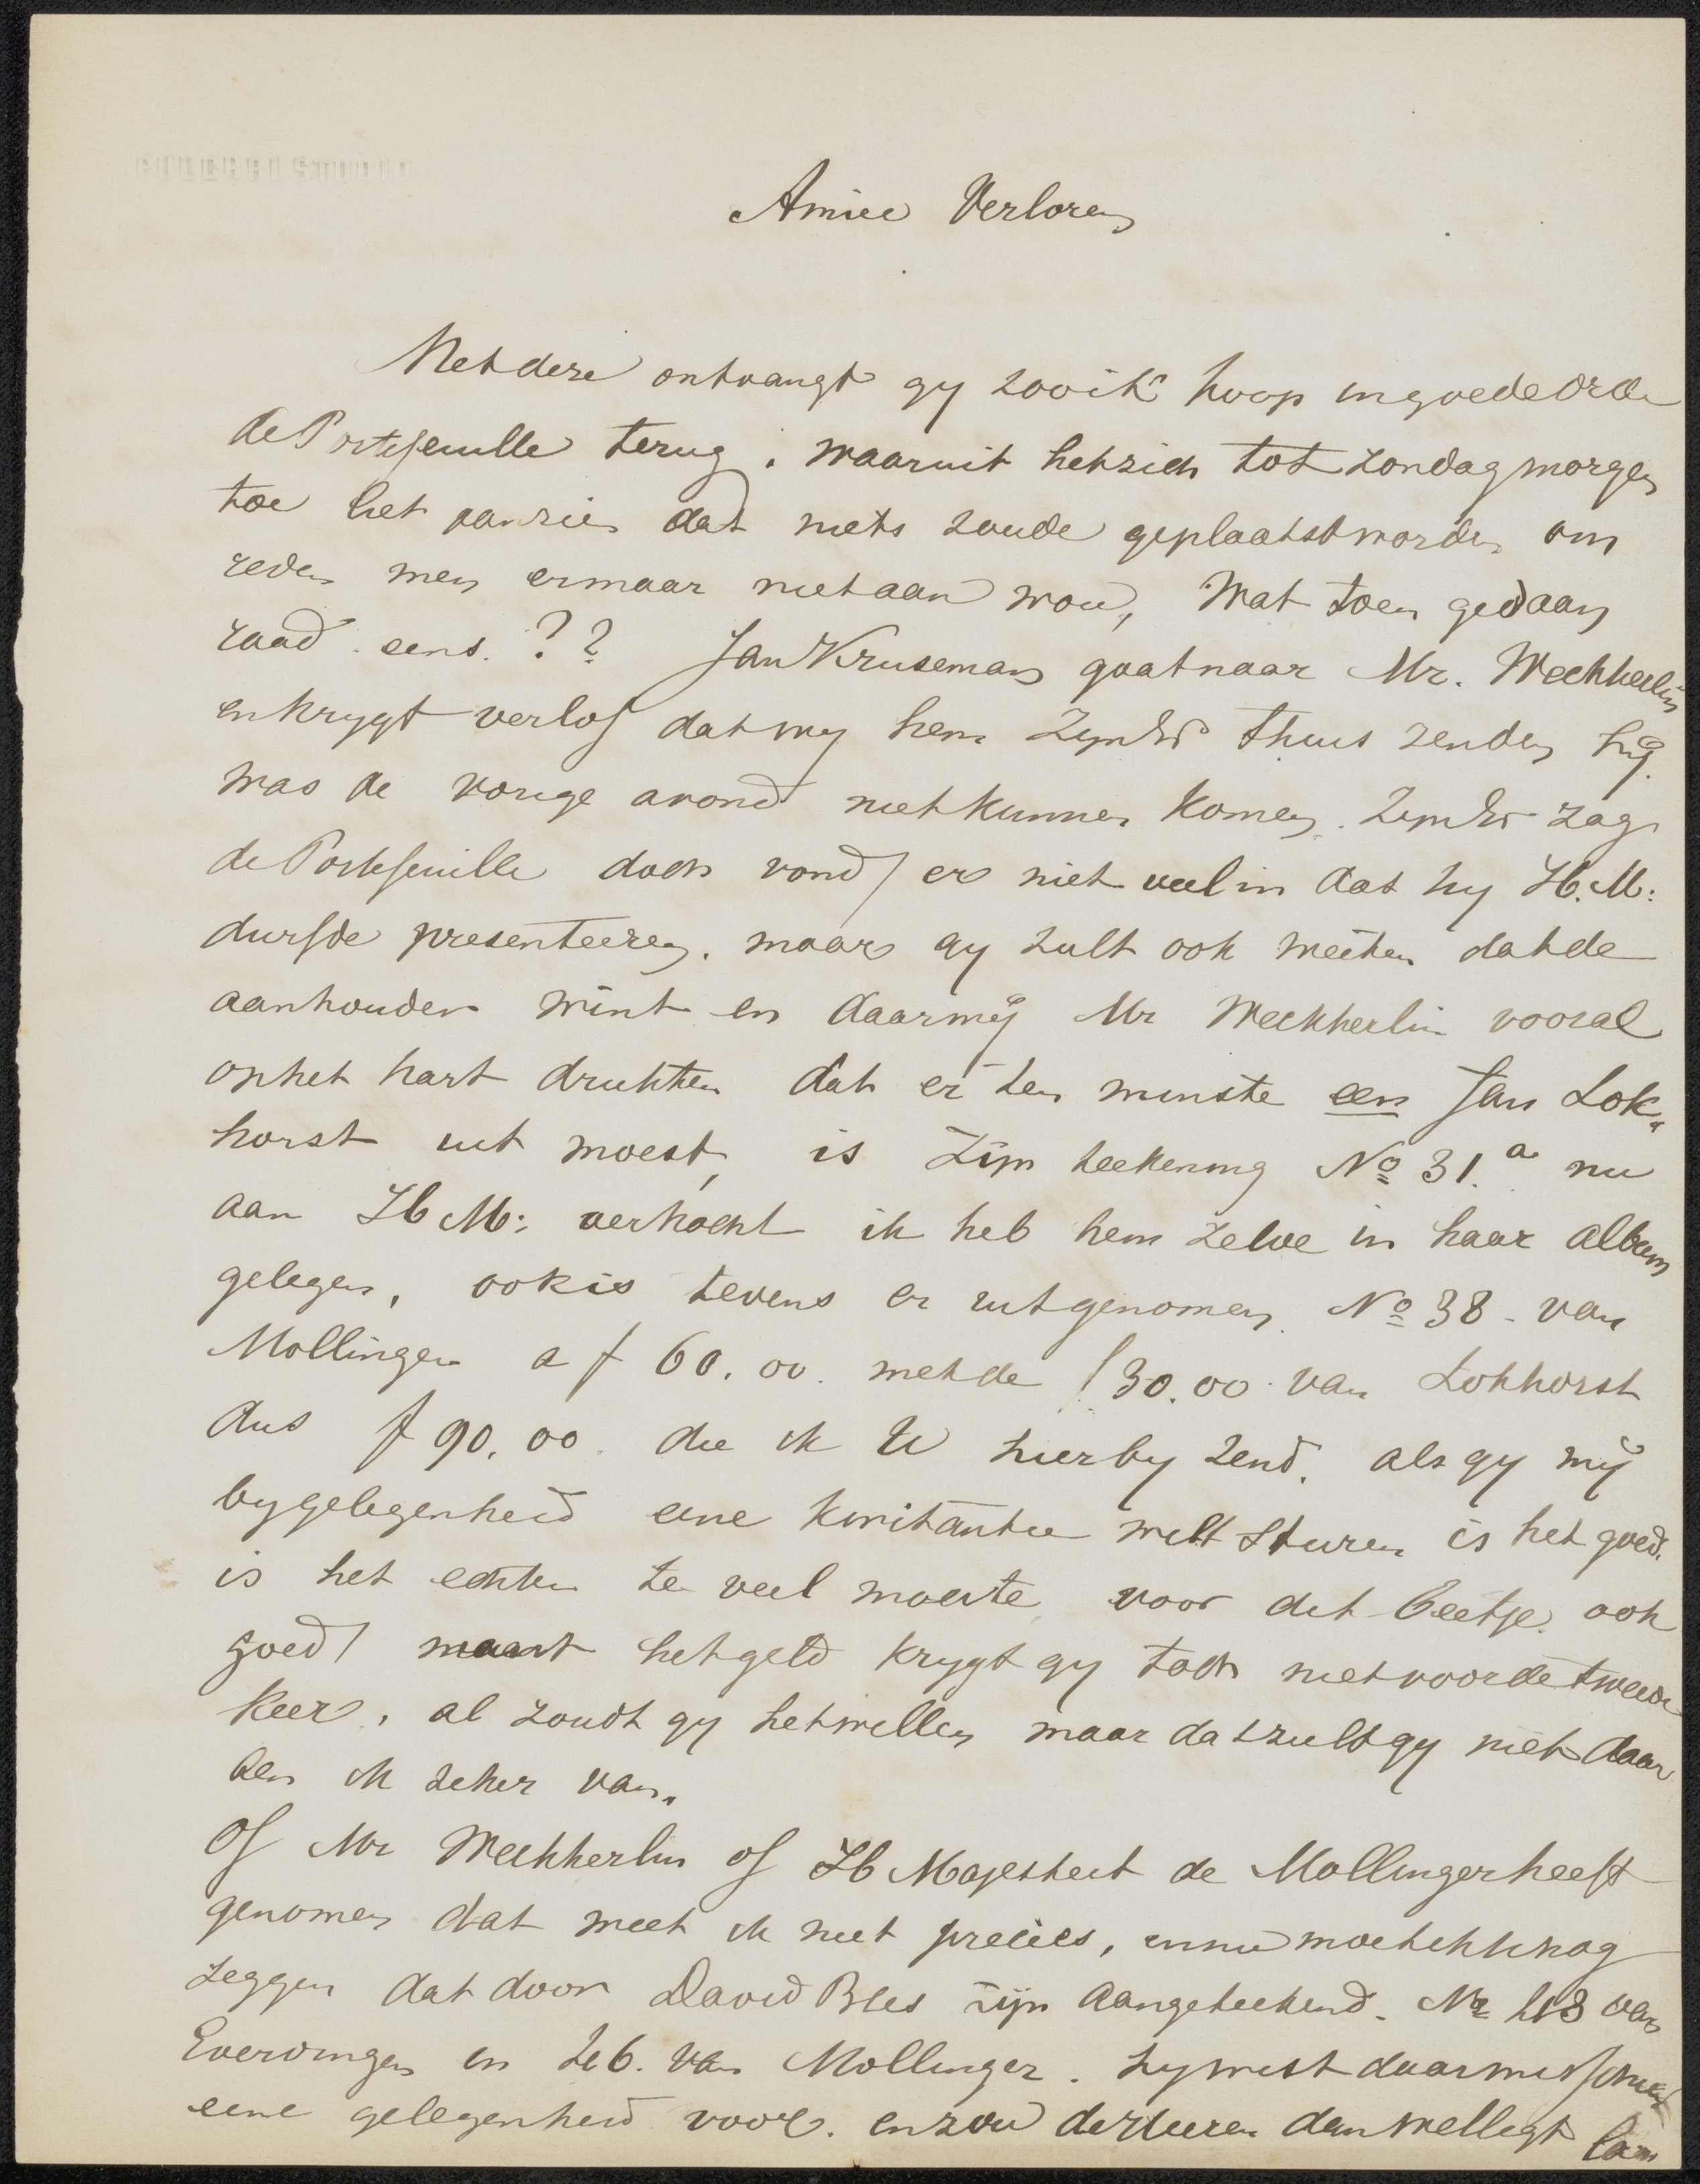 Amice Verloren
Met deze ontvangt gy zoo ik hoop in goede orde
de Portefeuille terug, waaruit het zich tot zondag morgen
toe liet aanzien dat niets zoude geplaatst worden om
reden men er maar niet aan wou, Wat toen gedaan
raad eens. ?? Jan Kruseman gaat naar Mr. Weckherlin
en krygt verlof dat wy hem ZynEd thuis zenden hij
was de vorige avond niet kunnen komen. ZynEd zag
de Portefeuille doch vond er niet veel in dat hy H.M:
durfde presenteeren. maar gy zult ook weeten dat de
aanhouder wint en daar wij Mr Weckherlin vooral
op het hart drukten dat er ten minste een Jan Lok-
horst uit moest, is zijn teekening No 31.a nu
aan H M: verkocht ik heb hem zelve in haar album
gelegen, ook is tevens er uitgenomen No 38 - van
Mollinger a f 60.00. met de f 30.00 van Lokhorst
dus f 90.00. die ik U hierby zend. als gy mij
by gelegenheid eene kwitantie wilt sturen is het goed.
is het echter te veel moeite voor dit beetje ook
goed maar het geld krygt gy toch niet voor de tweede
keer, al zoudt gy het willen maar dat zult gy niet daar
ben ik zeker van.
Of Mr Weckherlin of H Majesteit de Mollinger heeft
genomen dat weet ik niet precies, en nu moet ik U nog
zeggen dat door David Bles zijn aangeteekend. No van
Everdingen en van Mollinger. hy wist daar misschien
eene gelegenheid voor. en zou dezelleren dan wellegt